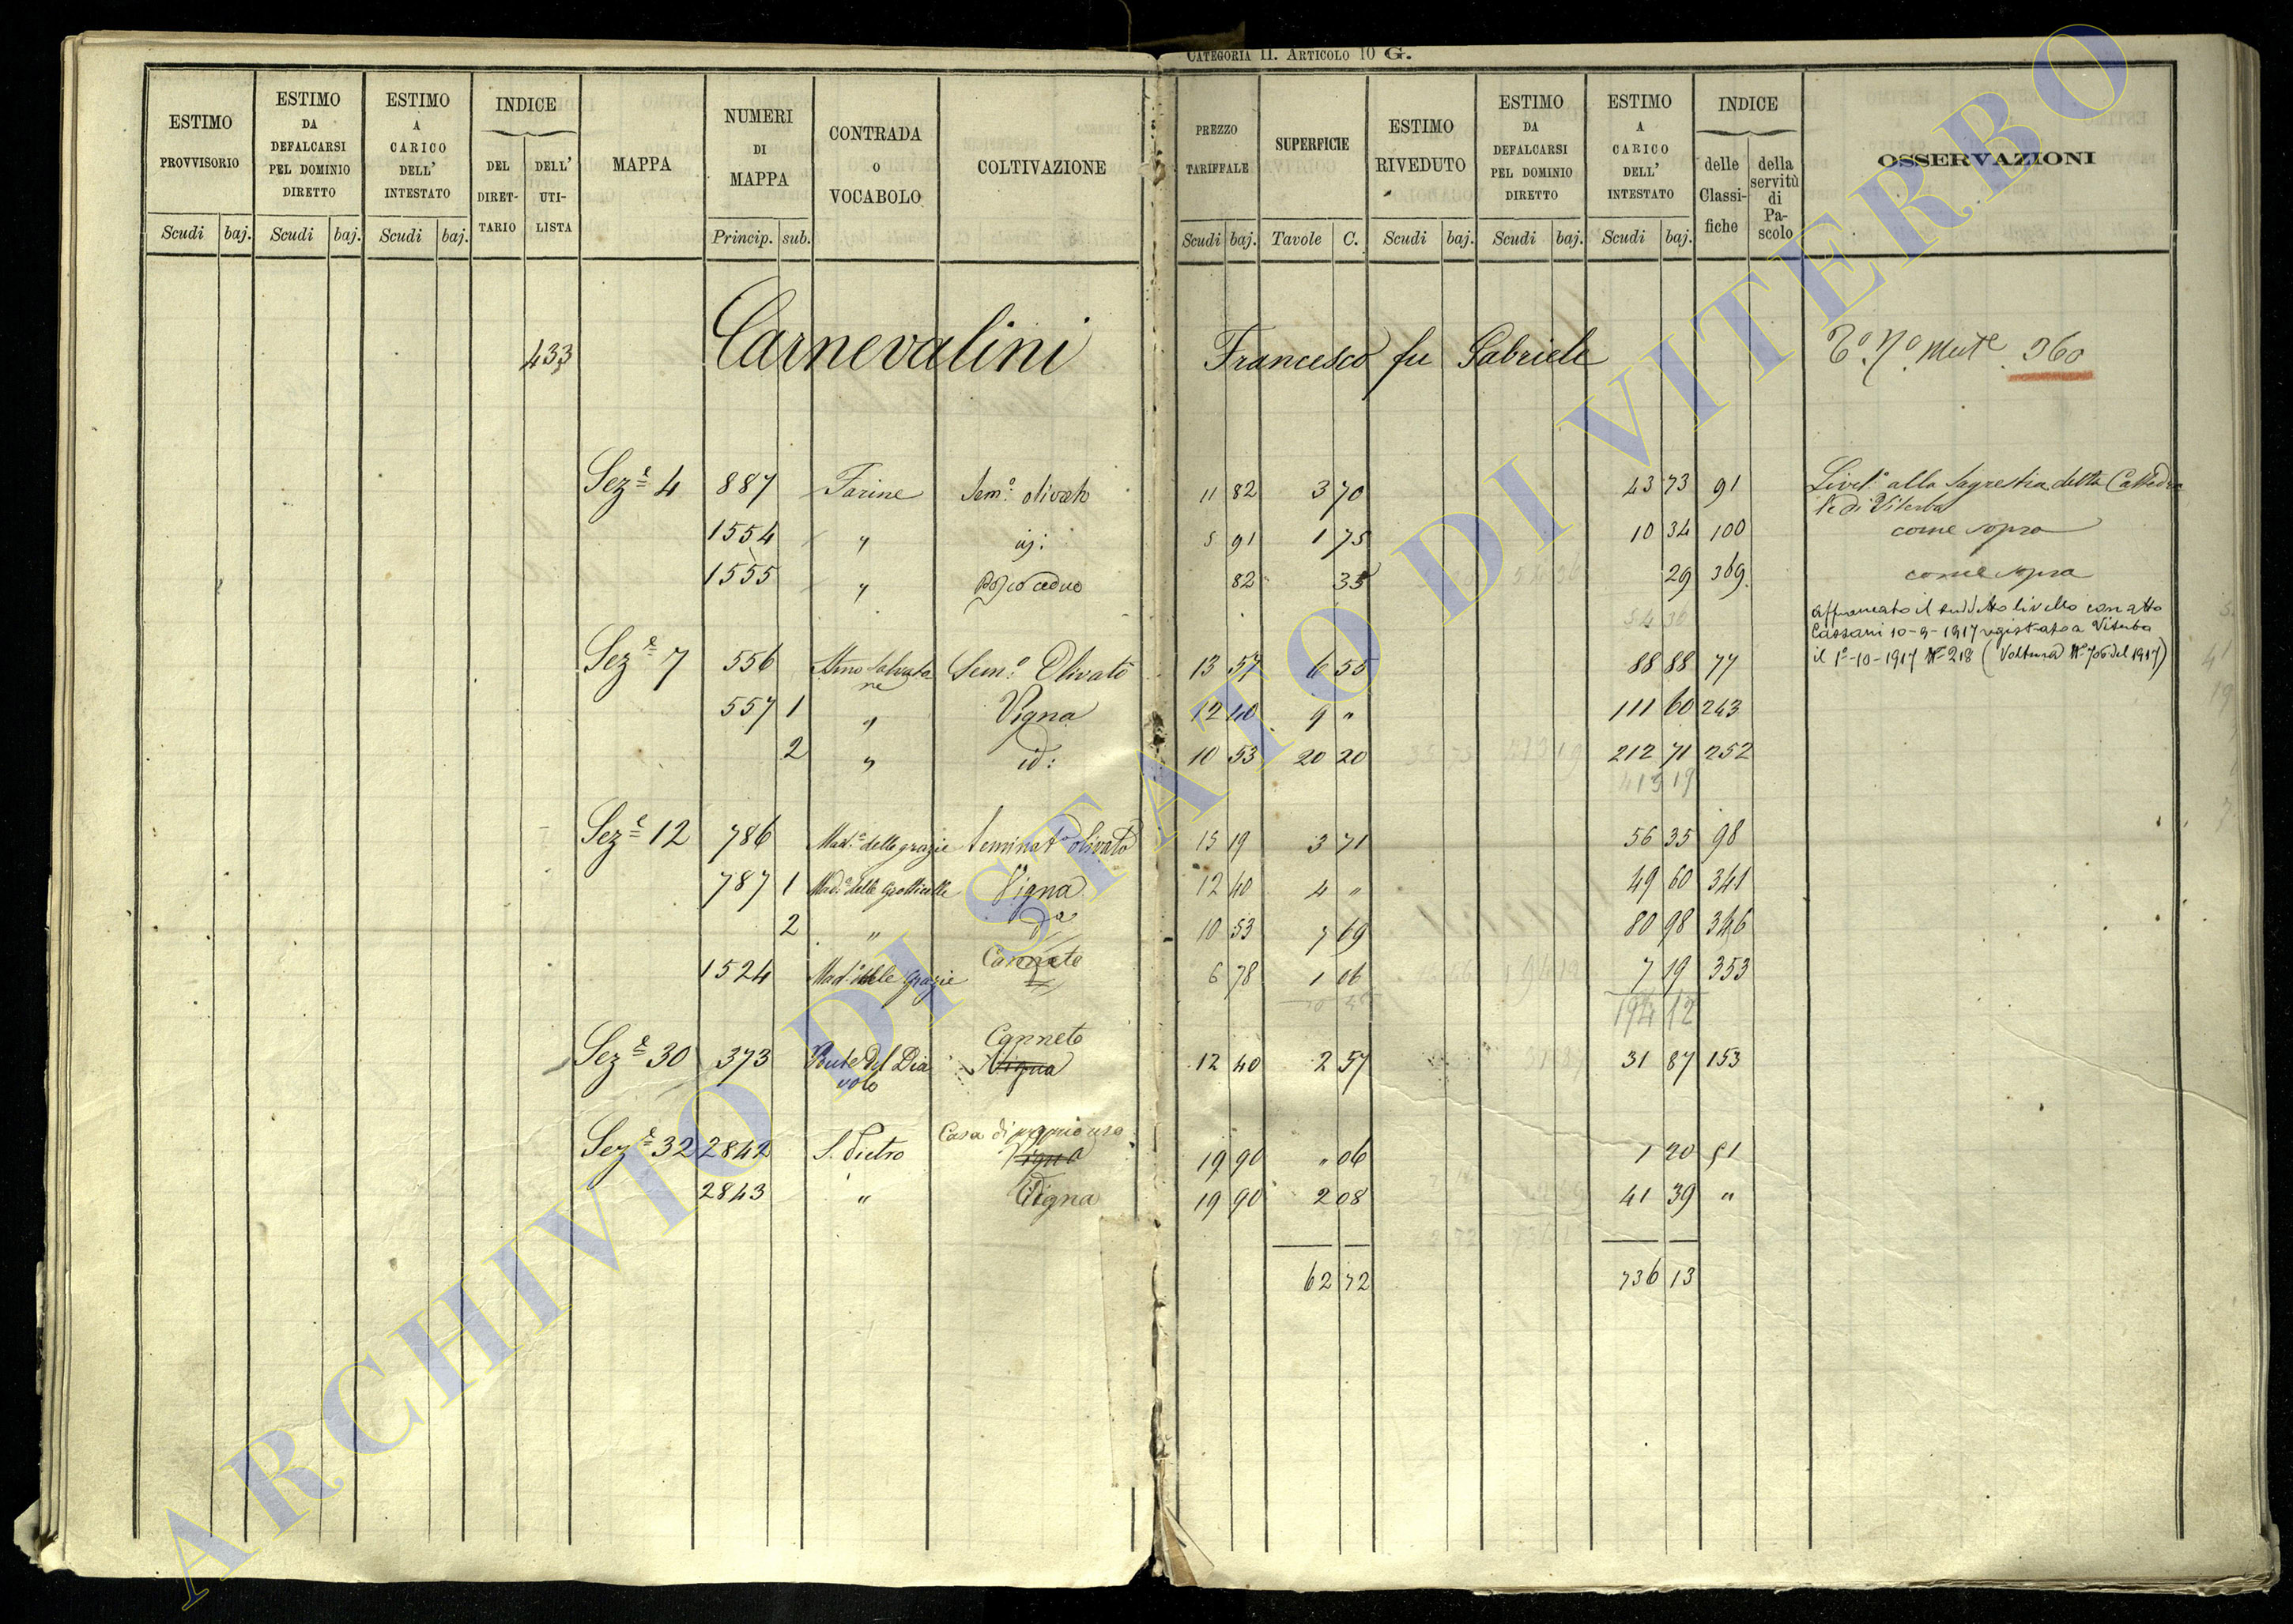 CATEGORIA II. ARTICOLO 10 G.
ESTIMO PROVVISORIO
ESTIMO DA DEFALCARSI PEL DOMINIO DIRETTO
ESTIMO A CARICO DELL' INTESTATO
INDICE
DEL DIRETTARIO
DELL' UTILISTA
MAPPA
NUMERI DI MAPPA
CONTRADA o VOCABOLO
COLTIVAZIONE
PREZZO TARIFFALE
SUPERFICIE
ESTIMO RIVEDUTO
ESTIMO DA DEFALCARSI PEL DOMINIO DIRETTO
ESTIMO A CARICO DELL' INTESTATO
INDICE
delle Classifiche
della servitù di Pascolo
OSSERVAZIONI
Scudi baj. Scudi baj. Scudi baj. Princip. sub. Scudi baj. Tavole C. Scudi baj. Scudi baj. Scudi baj.
433 Carnevalini Francesco fu Gabriele 360
Sez.e 4 887 Farine Sem.o olivato 11 82 3 70 43 73 91 Livel.o alla Sagrestia della Cattedra
le di Viterbo
1554 " id: 5 91 1 75 10 34 100 come sopra
1555 " Bosco ceduo 82 35 29 369 come sopra
54 36 affrancato il suddetto livello con atto
Cassani 10-9-1917 registrato a Viterbo
il 1°-10-1917 N° 218 (Voltura N° 706 del 1917)
Sez.e 7 556 Sem.o Olivato 13 57 6 55 88 88 77
557 1 " Vigna 12 40 9 " 111 60 243
2 " id: 10 53 20 20 212 71 252
413 19
Sez.e 12 786 Mad.a delle grazie Seminat.o olivato 15 19 3 71 56 35 98
787 1 Mad.a delle Grotticelle Vigna 12 40 4 " 49 60 341
2 " d.a 10 53 7 69 80 98 346
1524 Mad.a delle Grazie Canneto 6 78 1 06 7 19 353
194 12
Canneto
Sez.e 30 373 Ponte del Dia Vigna 12 40 2 57 31 87 153
volo
Casa di proprio uso
Sez.e 32 2842 S. Pietro Vigna 19 90 " 06 1 20 51
2843 " Vigna 19 90 2 08 41 39 "
62 72 736 13
ARCHIVIO DI STATO DI VITERBO